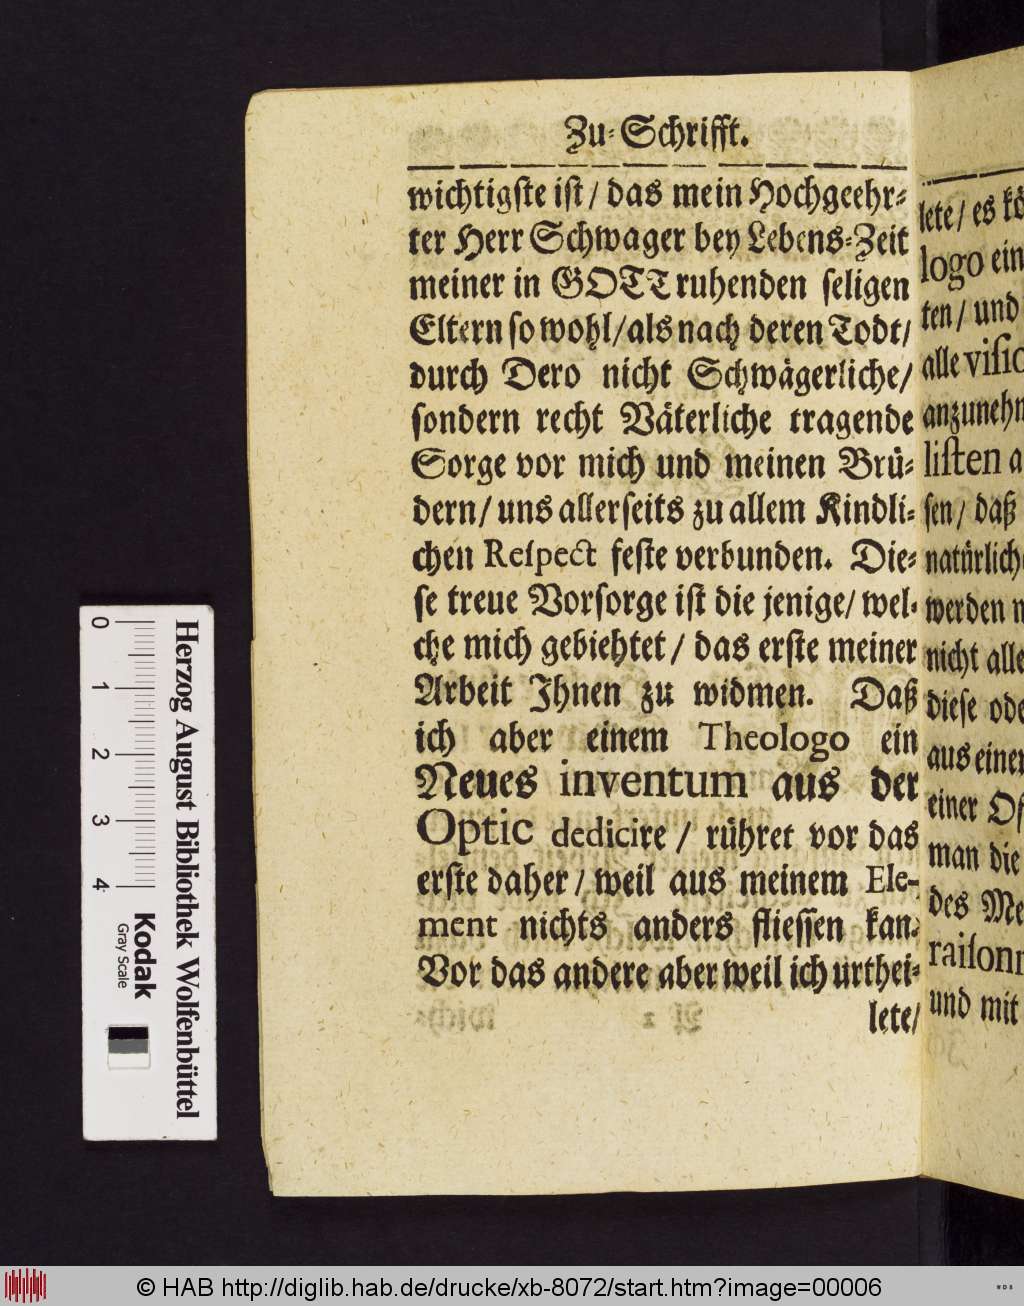 Zu-Schrifft.
wichtigste ist / das mein Hochgeehr-
ter Herr Schwager bey Lebens-Zeit
meiner in GOTT ruhenden seligen
Eltern so wohl / als nach deren Todt /
durch Dero nicht Schwägerliche /
sondern recht Väterliche tragende
Sorge vor mich und meinen Brü-
dern / uns allerseits zu allem Kindli-
chen Respect feste verbunden. Die-
se treue Vorsorge ist die jenige / wel-
che mich gebiehtet / das erste meiner
Arbeit Ihnen zu widmen. Daß
ich aber einem Theologo ein
Neues inventum aus der
Optic dedicire / rühret vor das
erste daher / weil aus meinem Ele-
ment nichts anders fliessen kan.
Vor das andere aber weil ich urthei-
lete /
lete / es kö
logo ein
ten / und
alle visio
anzunehm
listen a
sen / daß
natürlich
werden n
nicht alle
diese ode
aus einer
einer Of
man die
des Me
raisonn
und mit
0 1 2 3 4
Herzog August Bibliothek Wolfenbüttel
Kodak
Gray Scale
© HAB http://diglib.hab.de/drucke/xb-8072/start.htm?image=00006